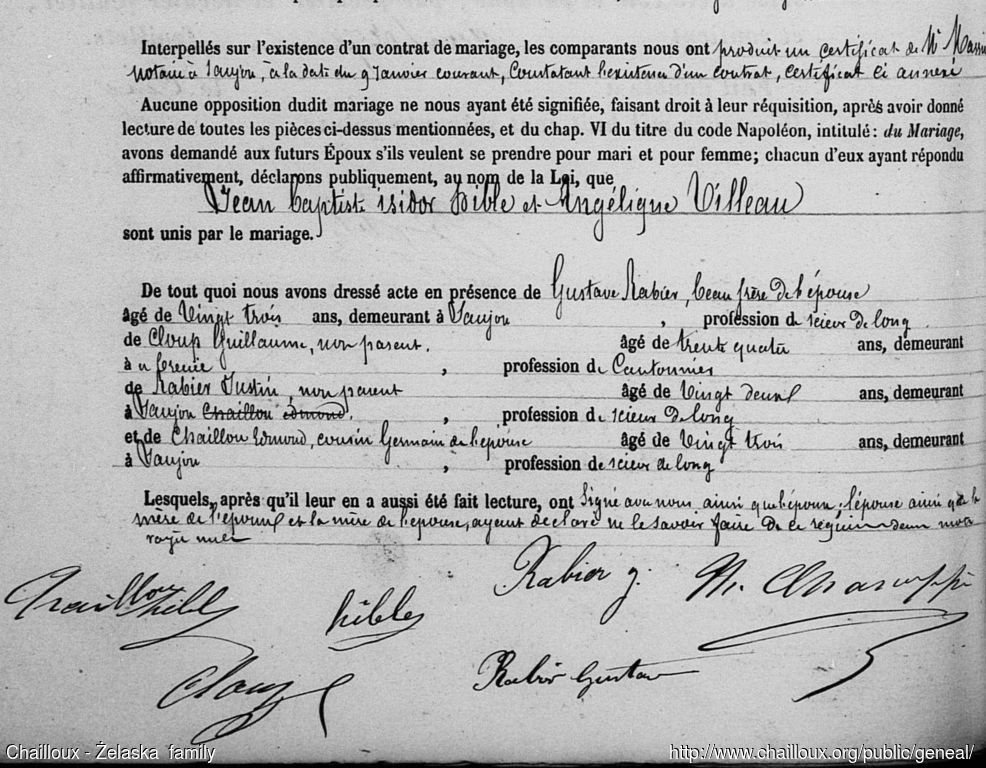 Interpellés sur l'existence d'un contrat de mariage, les comparants nous ont produit un certificat de Mr
notaire à Saujon, à la date du 9 Janvier courant, Constatant l'existence d'un contrat, certificat ci annexé
Aucune opposition dudit mariage ne nous ayant été signifiée, faisant droit à leur réquisition, après avoir donné
lecture de toutes les pièces ci-dessus mentionnées, et du chap. VI du titre du code Napoléon, intitulé : du Mariage,
avons demandé aux futurs Époux s'ils veulent se prendre pour mari et pour femme; chacun d'eux ayant répondu
affirmativement, déclarons publiquement, au nom de la Loi, que
Jean Baptiste isidor hible et Angéligne Villeau
sont unis par le mariage.
De tout quoi nous avons dressé acte en présence de Gustave Rabier, beau frère De l'épouse
âgé de Vingt trois ans, demeurant à Saujon, profession de scieur de long
de Cloup Guillaume, non parent. âgé de trente quatre ans, demeurant
à , profession de Cantonnier
de Rabier Justin, non parent âgé de Vingt deux ans, demeurant
à Saujon Chaillou edmond, profession de scieur De long
et de Chaillou Edmond, cousin Germain de l'épouse âgé de Vingt trois ans, demeurant
à Saujon, profession de scieur de long
Lesquels, après qu'il leur en a aussi été fait lecture, ont Signé avec nous ainsi que l'époux, l'épouse ainsi que la
mère de l'époux et la mère de l'épouse, ayant déclaré ne le savoir faire De ce requis deux mots
rayés nuls
hible
Rabier j.
Cloup
Rabier Gustave
Chailloux - Żelaska family
http://www.chailloux.org/public/geneal/